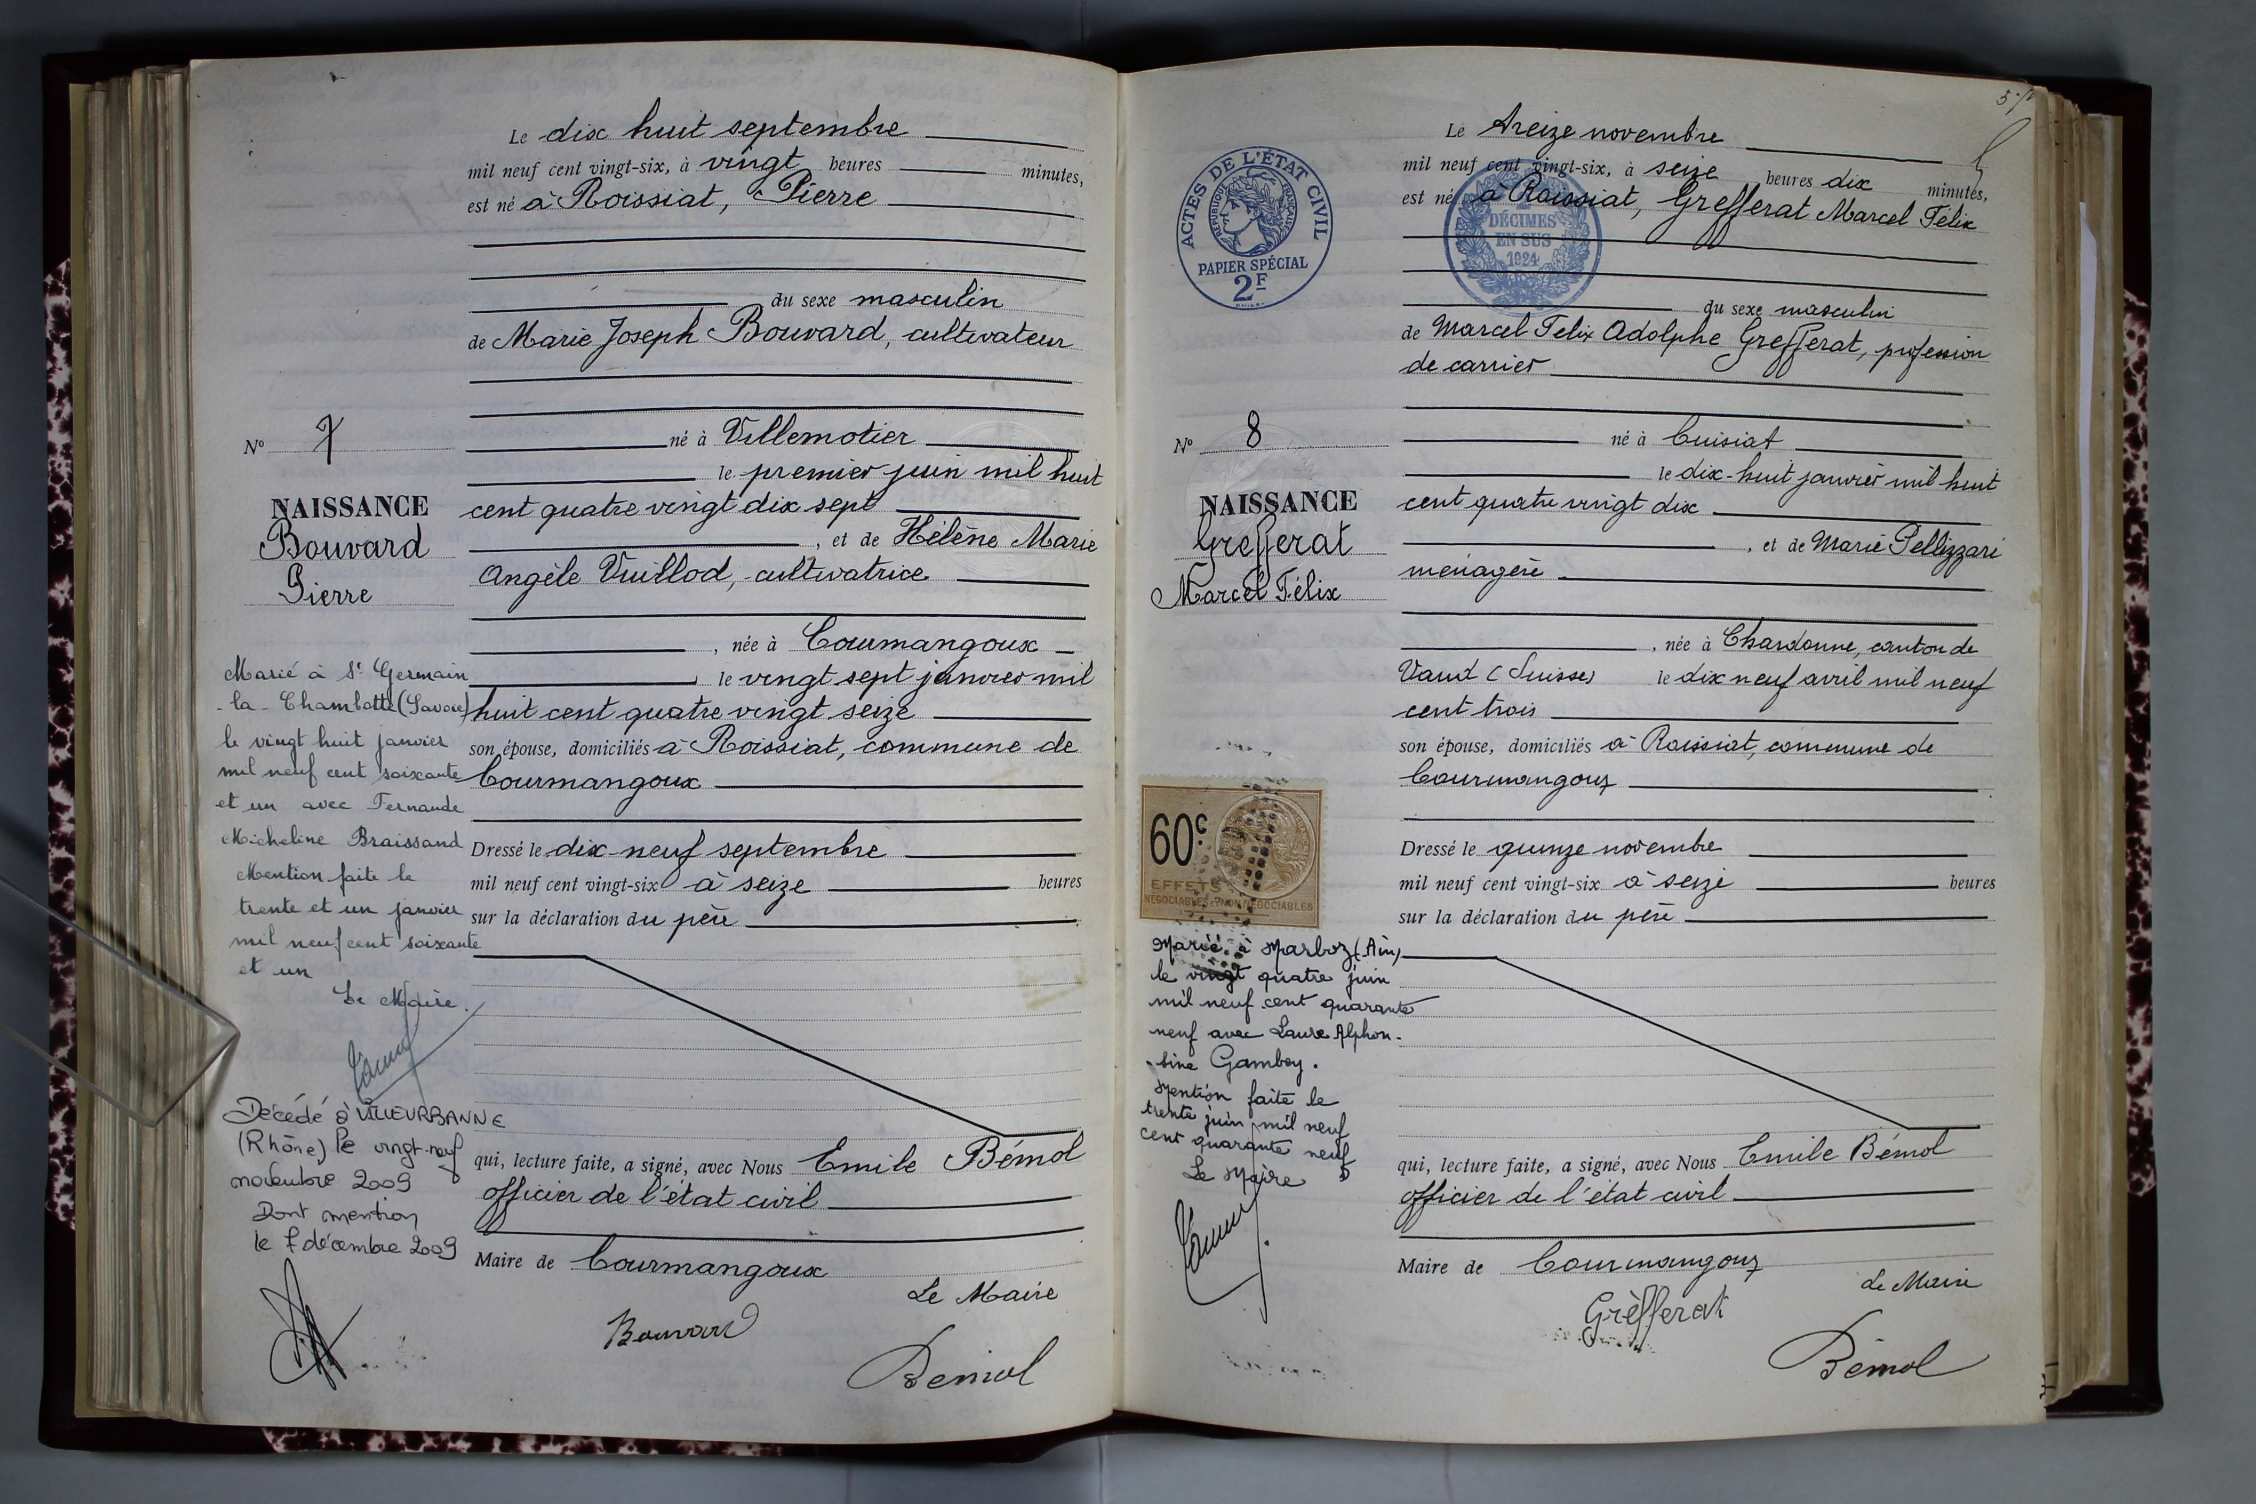 Le dix huit septembre
mil neuf cent vingt-six, à vingt heures minutes,
est né à Roissiat, Pierre
du sexe masculin
de Marie Joseph Bouvard, cultivateur
né à Villemotier
le premier juin mil huit
cent quatre vingt dix sept
, et de Hélène Marie
Angèle Vuillod, cultivatrice
, née à Courmangoux
, le vingt sept janvier mil
huit cent quatre vingt seize
son épouse, domiciliés à Roissiat, commune de
Courmangoux
Dressé le dix-neuf septembre
mil neuf cent vingt-six à seize heures
sur la déclaration du père
qui, lecture faite, a signé, avec Nous Emile Bémol
officier de l'état civil
Maire de Courmangoux
Le Maire
Bouvard
Bémol
No 7
NAISSANCE
Bouvard
Pierre
Marié à St Germain
-la-Chambotte (Savoie)
le vingt huit janvier
mil neuf cent soixante
et un avec Fernande
Micheline Braissand
Mention faite le
trente et un janvier
mil neuf cent soixante
et un
Le Maire.
Décédé à VILLEURBANNE
(Rhône) le vingt-neuf
novembre 2009
Dont mention
le 7 décembre 2009
Le treize novembre
mil neuf cent vingt-six, à seize heures dix minutes,
est né à Roissiat, Grefferat Marcel Félix
du sexe masculin
de Marcel Felix Adolphe Grefferat, profession
de carrier
né à Cuisiat
le dix-huit janvier mil huit
cent quatre vingt dix
, et de Marie Pellizzari
ménagère
, née à Chardonne, canton de
Vaud (Suisse) le dix neuf avril mil neuf
cent trois
son épouse, domiciliés à Roissiat, commune de
Courmangoux
Dressé le quinze novembre
mil neuf cent vingt-six à seize heures
sur la déclaration du père
qui, lecture faite, a signé, avec Nous Emile Bémol
officier de l'état civil
Maire de Courmangoux
Le Maire
Grèfferat
Bémol
ACTES DE L'ÉTAT CIVIL
RÉPUBLIQUE FRANÇAISE
PAPIER SPÉCIAL
2F
DÉCIMES
EN SUS
1924
No 8
NAISSANCE
Grefferat
Marcel Félix
60c
EFFETS
NÉGOCIABLES et NON NÉGOCIABLES
Marié à Marboz (Ain)
le vingt quatre juin
mil neuf cent quarante
neuf avec Laure Alphon-
-sine Gambey.
Mention faite le
trente juin mil neuf
cent quarante neuf
Le Maire